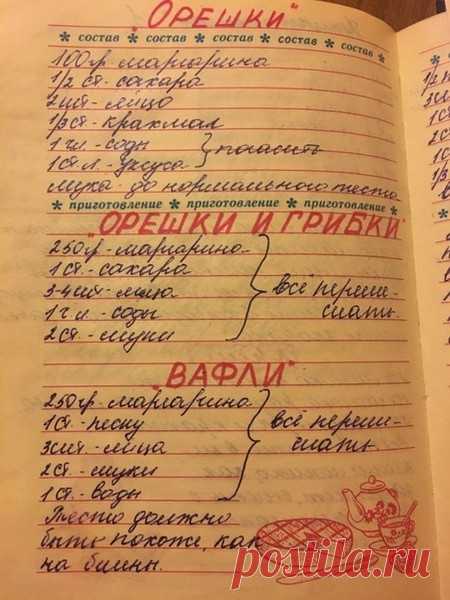 „ОРЕШКИ"
* состав * состав * состав * состав * состав *
100гр. маргарина
1/2 ст. сахара
2шт - яйцо
1/3 ст - крахмал
1 ч.л. - соды } погасить
1 ст. л. - уксуса
Мука до нормального теста
* приготовление * приготовление * приготовление *
„ОРЕШКИ И ГРИБКИ"
250гр - маргарина
1 ст. - сахара
3-4шт - яйца } всё переме-
1 ч л. соды шать.
2 ст - муки
„ВАФЛИ"
250гр - маргарина
1 ст - песку
3шт - яйца } всё переме-
2 ст. - муки шать.
1 ст. - воды
Тесто должно
быть похоже, как
на блины.
postila.ru